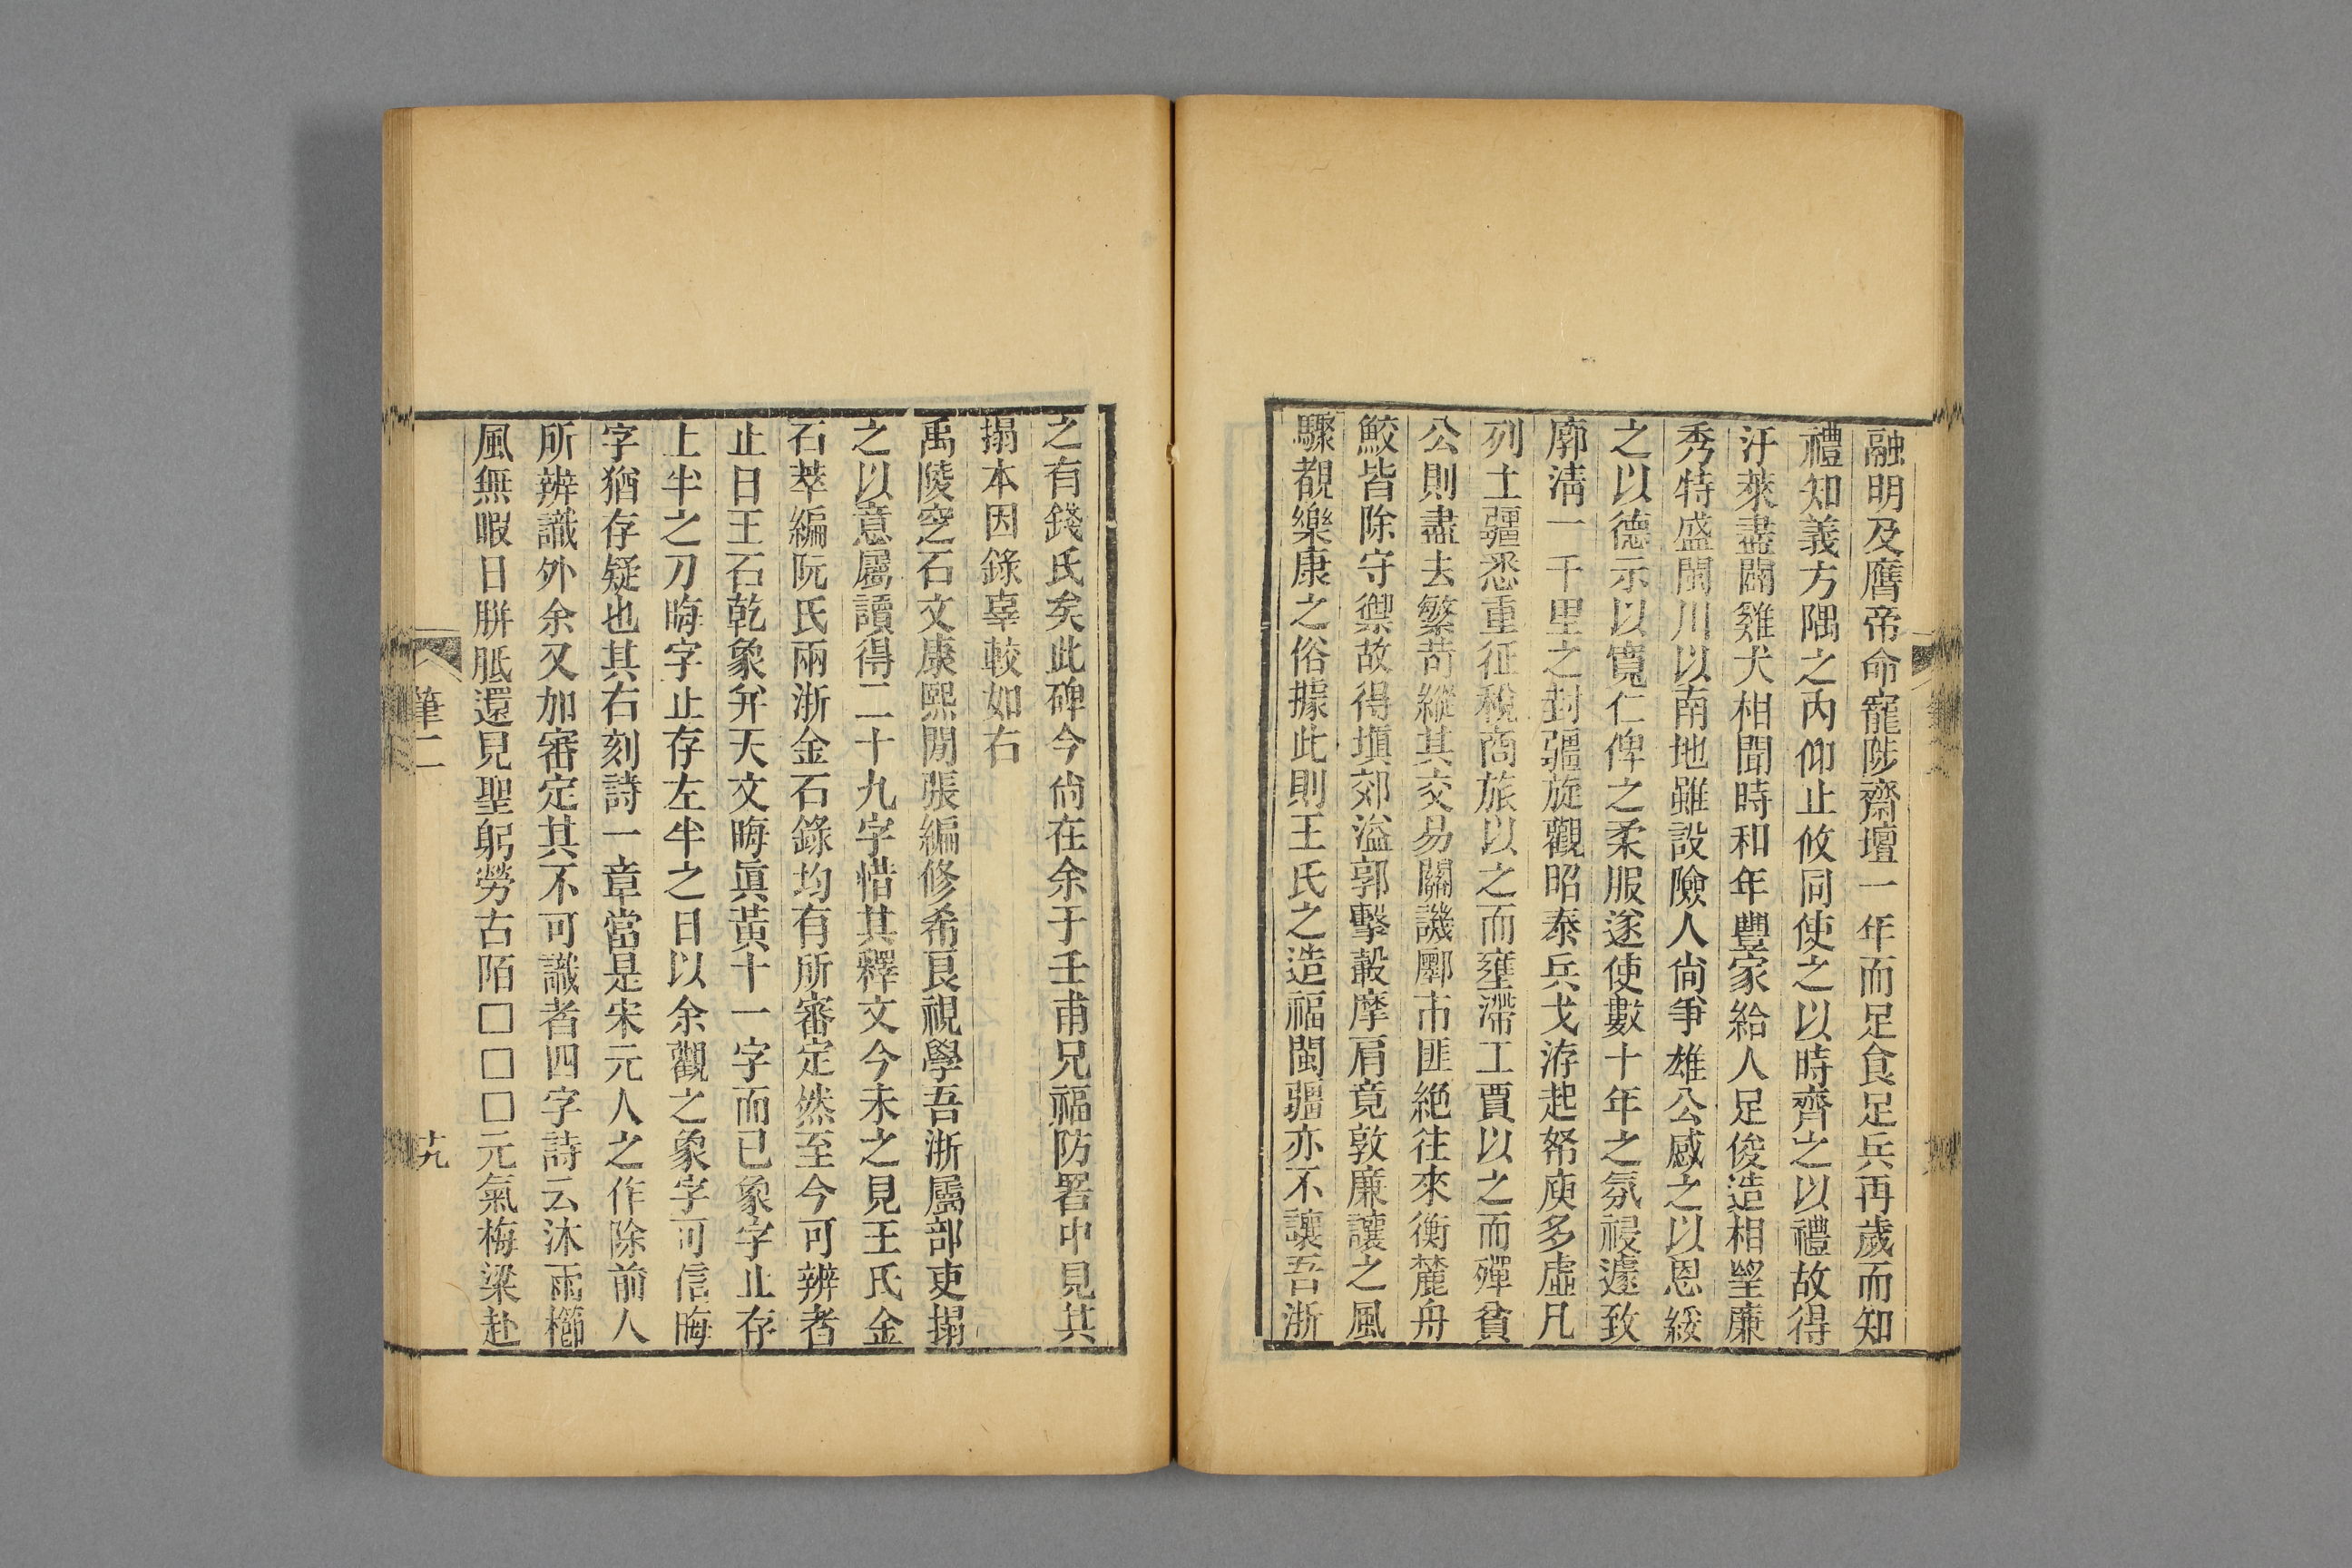 融明及膺帝命寵陟齋壇一年而足食足兵再歲而知
禮知義方隅之內仰止攸同使之以時齊之以禮故得
汙萊盡闢雞犬相聞時和年豐家給人足俊造相望廉
秀特盛閩川以南地雖設險人尙爭雄公感之以恩綏
之以德示以寬仁俾之柔服遂使數十年之氛祲遽致
廓清一千里之封疆旋觀昭泰兵戈洊起帑庾多虛凡
列土疆悉重征稅商旅以之而壅滯工賈以之而殫貧
公則盡去繁苛縱其交易關譏鄽市匪絕往來衡麓舟
鮫皆除守禦故得塡郊溢郭擊轂摩肩竟敦廉讓之風
驟覩樂康之俗據此則王氏之造福閩疆亦不讓吾浙
之有錢氏矣此碑今尙在余于壬甫兄福防署中見其
搨本因錄辜較如右
禹陵窆石文康熙閒張編修希良視學吾浙屬部吏搨
之以意屬讀得二十九字惜其釋文今未之見王氏金
石萃編阮氏兩浙金石錄均有所審定然至今可辨者
止日王石乾象幷天文晦眞黃十一字而已象字止存
上半之刀晦字止存左半之日以余觀之象字可信晦
字猶存疑也其右刻詩一章當是宋元人之作除前人
所辨識外余又加審定其不可識者四字詩云沐雨櫛
風無暇日胼胝還見聖躬勞古陌□□□元氣梅梁赴
筆二
十九